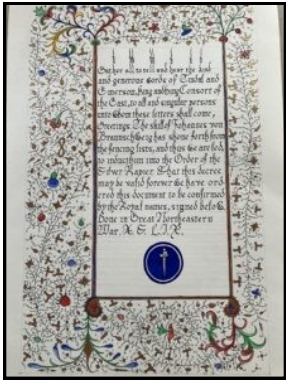 Gather all to tell and hear the kind
and generous words of Tindal and
Emerson, King and King Consort of
the East, to all and singular persons
unto whom these letters shall come,
Greetings. The skill of Johannes von
has shone forth from
the fencing lists, and thus we are led,
to induct him into the Order of the
Silver Rapier. That this decree
may be valid forever we have ord
ered this document to be confirmed
by the Royal names, signed below.
Done in Great Northeastern
War, A. S. L.I.V.